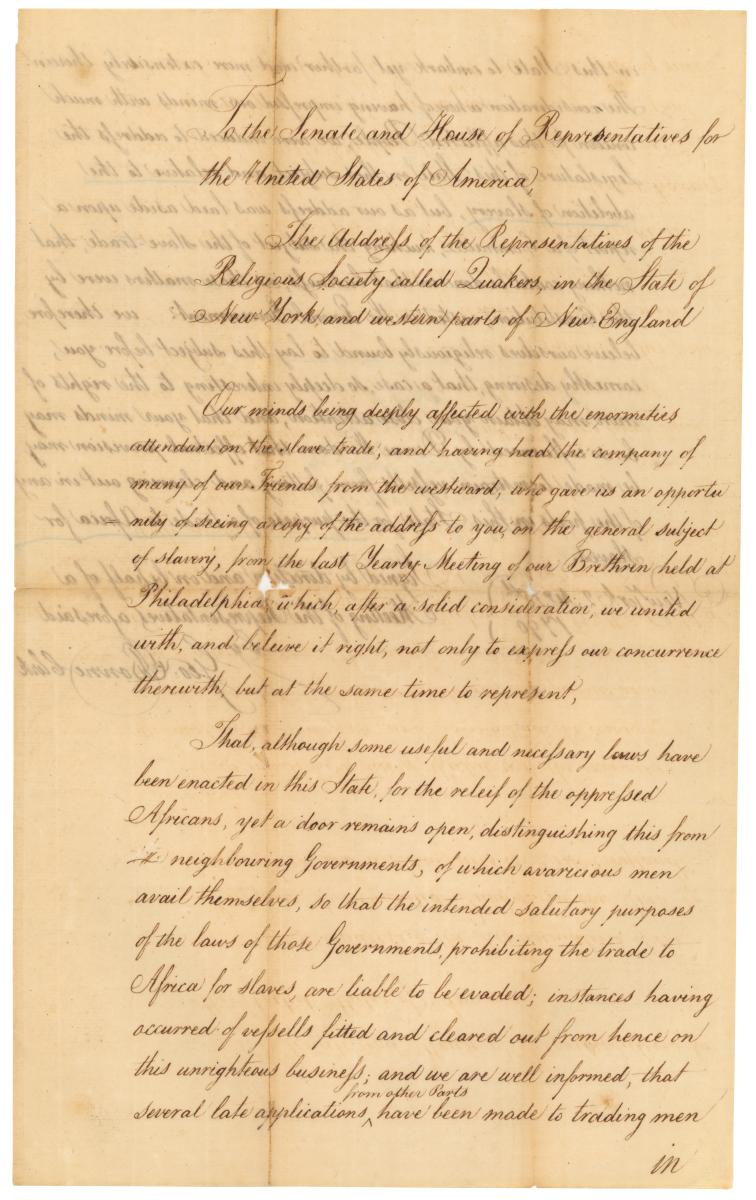 To the Senate and House of Representatives for
the United States of America,
The Address of the Representatives of the
Religious Society called Quakers, in the State of
New York and western parts of New-England
Our minds being deeply affected with the enormities
attendant on the slave trade, and having had the company of
many of our Friends from the westward, who gave us an opportu
=nity of seeing a copy of the address to you, on the general subject
of slavery, from the last Yearly Meeting of our Brethren held at
Philadelphia, which, after a solid consideration, we united
with, and beleive it right, not only to express our concurrence
therewith, but at the same time to represent,
That, although some useful and necessary laws have
been enacted in this State, for the releif of the oppressed
Africans, yet a door remains open, distinguishing this from
neighbouring Governments, of which avaricious men
avail themselves, so that the intended salutary purposes
of the laws of those Governments, prohibiting the trade to
Africa for slaves, are liable to be evaded; instances having
occurred of vessells fitted and cleared out from hence on
this unrighteous business; and we are well informed, that
from other Parts
several late applications, ^ have been made to trading men
in